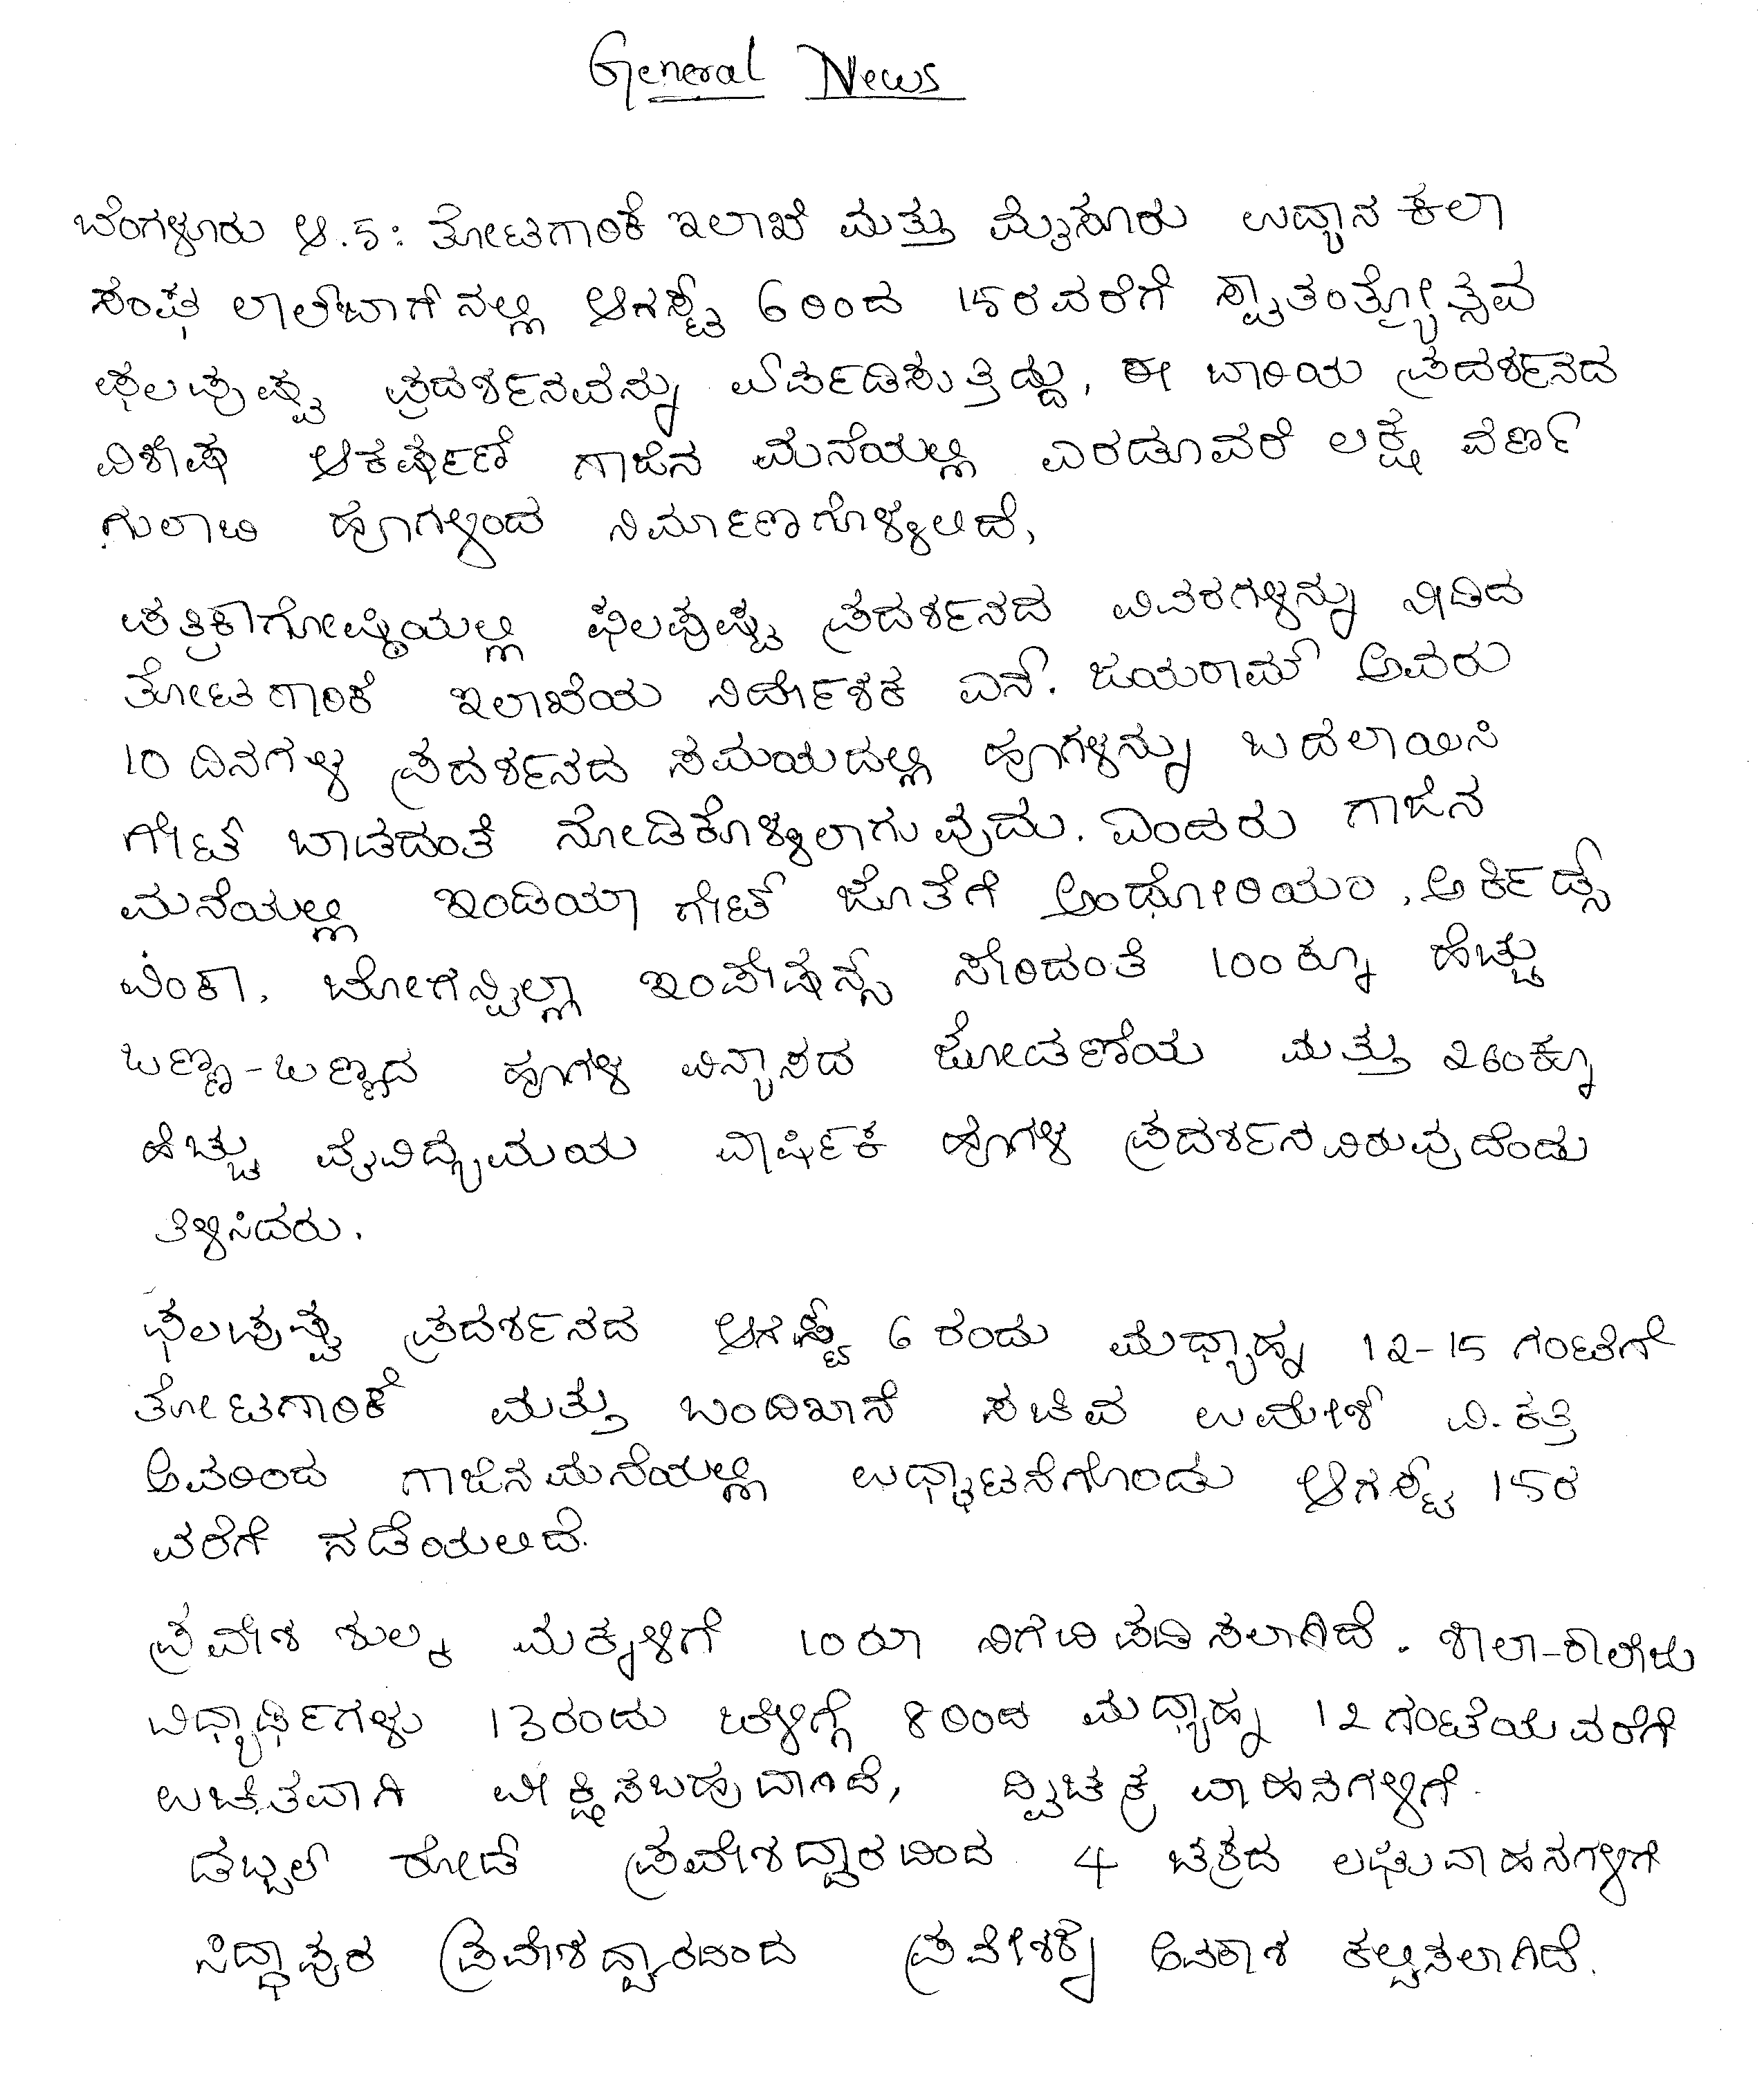 General News
ಬೆಂಗಳೂರು ಆ.5: ತೋಟಗಾರಿಕೆ ಇಲಾಖೆ ಮತ್ತು ಮೈಸೂರು ಉದ್ಯಾನ ಕಲಾ
ಸಂಘ ಲಾಲ್‌ಬಾಗ್ ನಲ್ಲಿ ಆಗಸ್ಟ್ 6 ರಿಂದ 15ರವರೆಗೆ ಸ್ವಾತಂತ್ರ್ಯೋತ್ಸವ
ಫಲಪುಷ್ಪ ಪ್ರದರ್ಶನವನ್ನು ಏರ್ಪಡಿಸುತ್ತಿದ್ದು, ಈ ಬಾರಿಯ ಪ್ರದರ್ಶನದ
ವಿಶೇಷ ಆಕರ್ಷಣೆ ಗಾಜಿನ ಮನೆಯಲ್ಲಿ ಎರಡೂವರೆ ಲಕ್ಷ ವರ್ಣ
ಗುಲಾಬಿ ಹೂಗಳಿಂದ ನಿರ್ಮಾಣಗೊಳ್ಳಲಿದೆ,
ಪತ್ರಿಕಾಗೋಷ್ಠಿಯಲ್ಲಿ ಫಲಪುಷ್ಪ ಪ್ರದರ್ಶನದ ವಿವರಗಳನ್ನು ನೀಡಿದ
ತೋಟಗಾರಿಕೆ ಇಲಾಖೆಯ ನಿರ್ದೇಶಕ ಎನ್. ಜಯರಾಮ್ ಅವರು
10 ದಿನಗಳ ಪ್ರದರ್ಶನದ ಸಮಯದಲ್ಲಿ ಹೂಗಳನ್ನು ಬದಲಾಯಿಸಿ
ಗೇಟ್ ಬಾಡದಂತೆ ನೋಡಿಕೊಳ್ಳಲಾಗುವುದು. ಎಂದರು ಗಾಜಿನ
ಮನೆಯಲ್ಲಿ ಇಂಡಿಯಾ ಗೇಟ್ ಜೊತೆಗೆ ಅಂಥೋರಿಯಂ, ಅರ್ಕಿಡ್ಸ್
ವಿಂಕಾ, ಬೋಗನ್ವಿಲ್ಲಾ ಇಂಪೇಷನ್ಸ್ ಸೇರಿದಂತೆ 100ಕ್ಕೂ ಹೆಚ್ಚು
ಬಣ್ಣ-ಬಣ್ಣದ ಹೂಗಳ ವಿನ್ಯಾಸದ ಜೋಡಣೆಯ ಮತ್ತು 260ಕ್ಕೂ
ಹೆಚ್ಚು ವೈವಿದ್ಯಮಯ ವಾರ್ಷಿಕ ಹೂಗಳ ಪ್ರದರ್ಶನವಿರುವುದೆಂದು
ತಿಳಿಸಿದರು.
ಫಲಪುಷ್ಪ ಪ್ರದರ್ಶನದ ಆಗಸ್ಟ್ 6 ರಂದು ಮಧ್ಯಾಹ್ನ 12-15 ಗಂಟೆಗೆ
ತೋಟಗಾರಿಕೆ ಮತ್ತು ಬಂದಿಖಾನೆ ಸಚಿವ ಉಮೇಶ್ ವಿ.ಕತ್ತಿ
ಅವರಿಂದ ಗಾಜಿನಮನೆಯಲ್ಲಿ ಉದ್ಘಾಟನೆಗೊಂಡು ಆಗಸ್ಟ್ 15ರ
ವರೆಗೆ ನಡೆಯಲಿದೆ.
ಪ್ರವೇಶ ಶುಲ್ಕ ಮಕ್ಕಳಿಗೆ 10ರೂ ನಿಗಧಿಪಡಿಸಲಾಗಿದೆ. ಶಾಲಾ-ಕಾಲೇಜು
ವಿದ್ಯಾರ್ಥಿಗಳು 13ರಂದು ಬೆಳಿಗ್ಗೆ 8ರಿಂದ ಮದ್ಯಾಹ್ನ 12ಗಂಟೆಯವರೆಗೆ
ಉಚಿತವಾಗಿ ವೀಕ್ಷಿಸಬಹುದಾಗಿದೆ, ದ್ವಿಚಕ್ರ ವಾಹನಗಳಿಗೆ.
ಡಬ್ಬಲ್ ರೋಡ್ ಪ್ರವೇಶದ್ವಾರದಿಂದ 4 ಚಕ್ರದ ಲಘುವಾಹನಗಳಿಗೆ
ಸಿದ್ಧಾಪುರ ಪ್ರವೇಶದ್ವಾರದಿಂದ ಪ್ರವೇಶಕ್ಕೆ ಅವಕಾಶ ಕಲ್ಪಿಸಲಾಗಿದೆ.